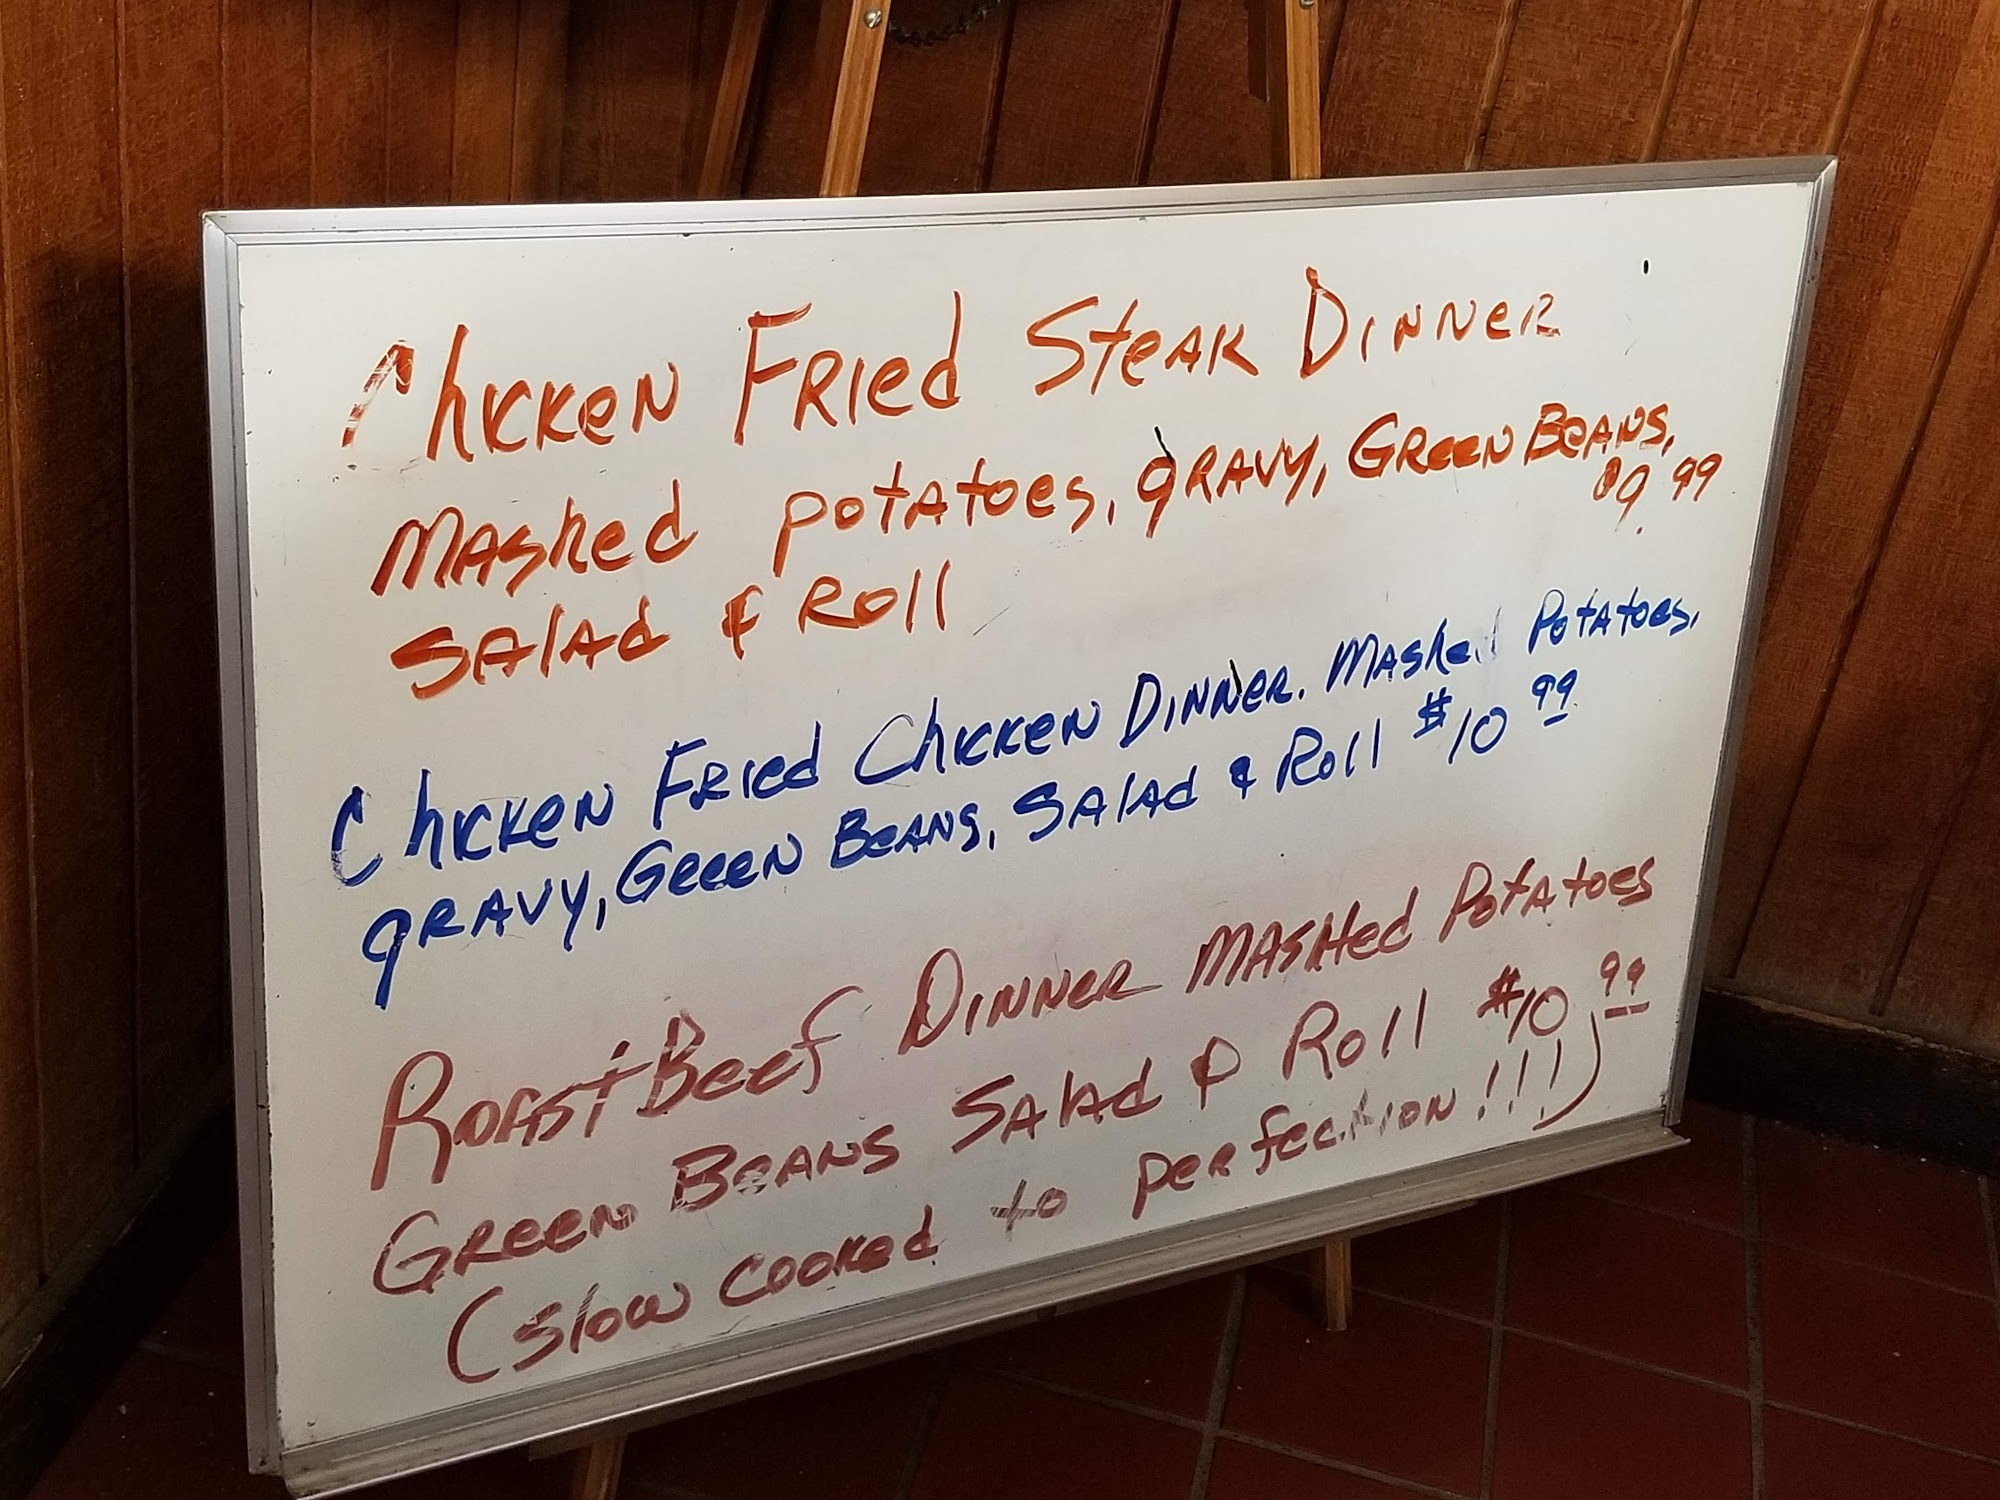 Chicken Fried Steak Dinner
Mashed potatoes, gravy, Green Beans,
$9.99
Salad & Roll
Chicken Fried Chicken Dinner. Mashed Potatoes,
gravy, Green Beans, Salad & Roll $10 99
Roast Beef Dinner Mashed Potatoes
Green Beans Salad & Roll $10 99
(slow cooked to perfection!!!)